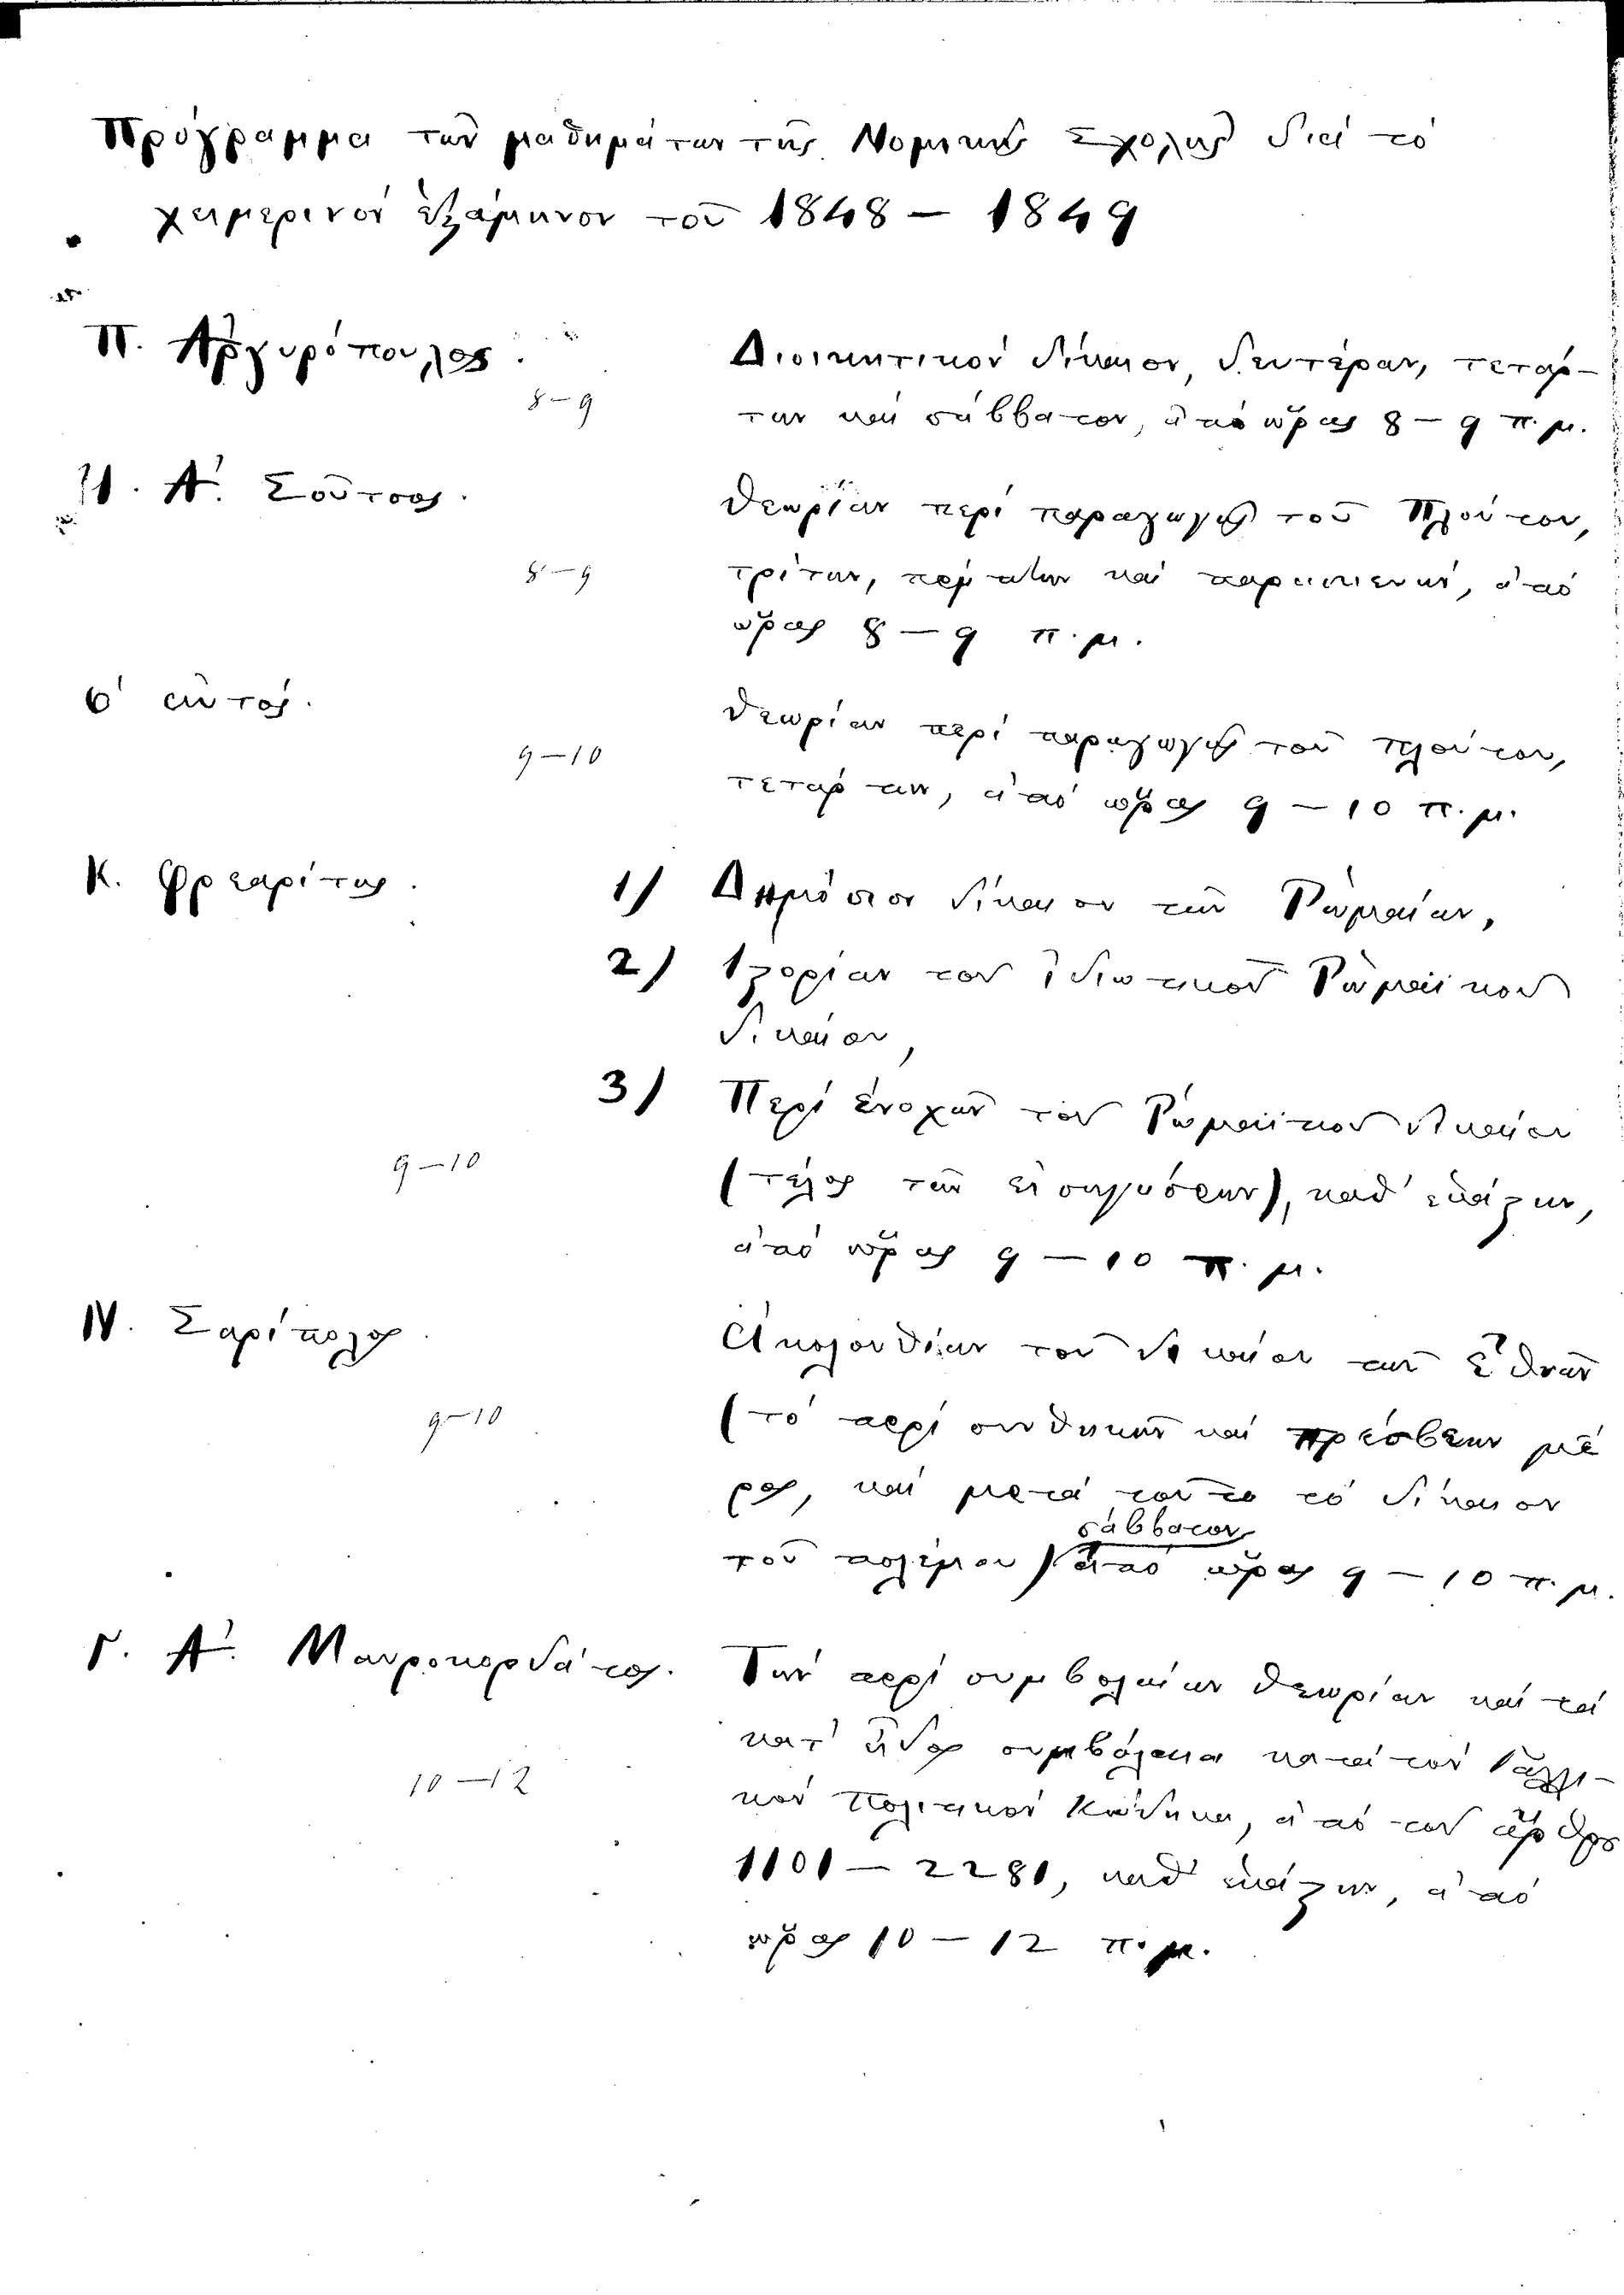 Πρόγραμμα τῶν μαθημάτων τῆς Νομικῆς Σχολῆς διά τό
χειμερινόν ἑξάμηνον τοῦ 1848 – 1849
Π. Ἀργυρόπουλος.
Διοικητικόν δίκαιον, δευτέραν, τετάρ-
8 – 9
την καί σάββατον, ἀπό ὥρας 8 – 9 π.μ.
Ἰ. Ἀ. Σοῦτσος.
Θεωρίαν περί παραγωγῆς τοῦ Πλούτου,
8 – 9
τρίτην, πέμπτην καί παρασκευήν, ἀπό
ὥρας 8 – 9 π.μ.
Ὁ αὐτός.
Θεωρίαν περί παραγωγῆς τοῦ πλούτου,
9 – 10
τετάρτην, ἀπό ὥρας 9 – 10 π.μ.
Κ. Φρεαρίτης.
1) Δημόσιον δίκαιον τῶν Ῥωμαίων,
2) Ἱστορίαν τοῦ ἰδιωτικοῦ Ῥωμαϊκοῦ
δικαίου,
3) Περί ἐνοχῶν τοῦ Ῥωμαϊκοῦ δικαίου
9 – 10
(τέλος τῶν εἰσηγήσεων), καθ' ἑκάστην,
ἀπό ὥρας 9 – 10 π.μ.
Ν. Σαρίπολος.
Ἀκολουθίαν τοῦ δικαίου τῶν Ἐθνῶν
9 – 10
(τό περί συνθηκῶν καί πρέσβεων μέ
ρος, καί μετά τοῦτο τό δίκαιον
σάββατον
τοῦ πολέμου) ἀπό ὥρας 9 – 10 π.μ.
Γ. Ἀ. Μαυροκορδάτος.
Τήν περί συμβολαίων θεωρίαν καί τά
κατ' εἶδος συμβόλαια κατά τόν Γαλλι-
10 – 12
κόν Πολιτικόν Κώδηκα, ἀπό τοῦ ἄρθρου
1101 – 2281, καθ' ἑκάστην, ἀπό
ὥρας 10 – 12 π.μ.